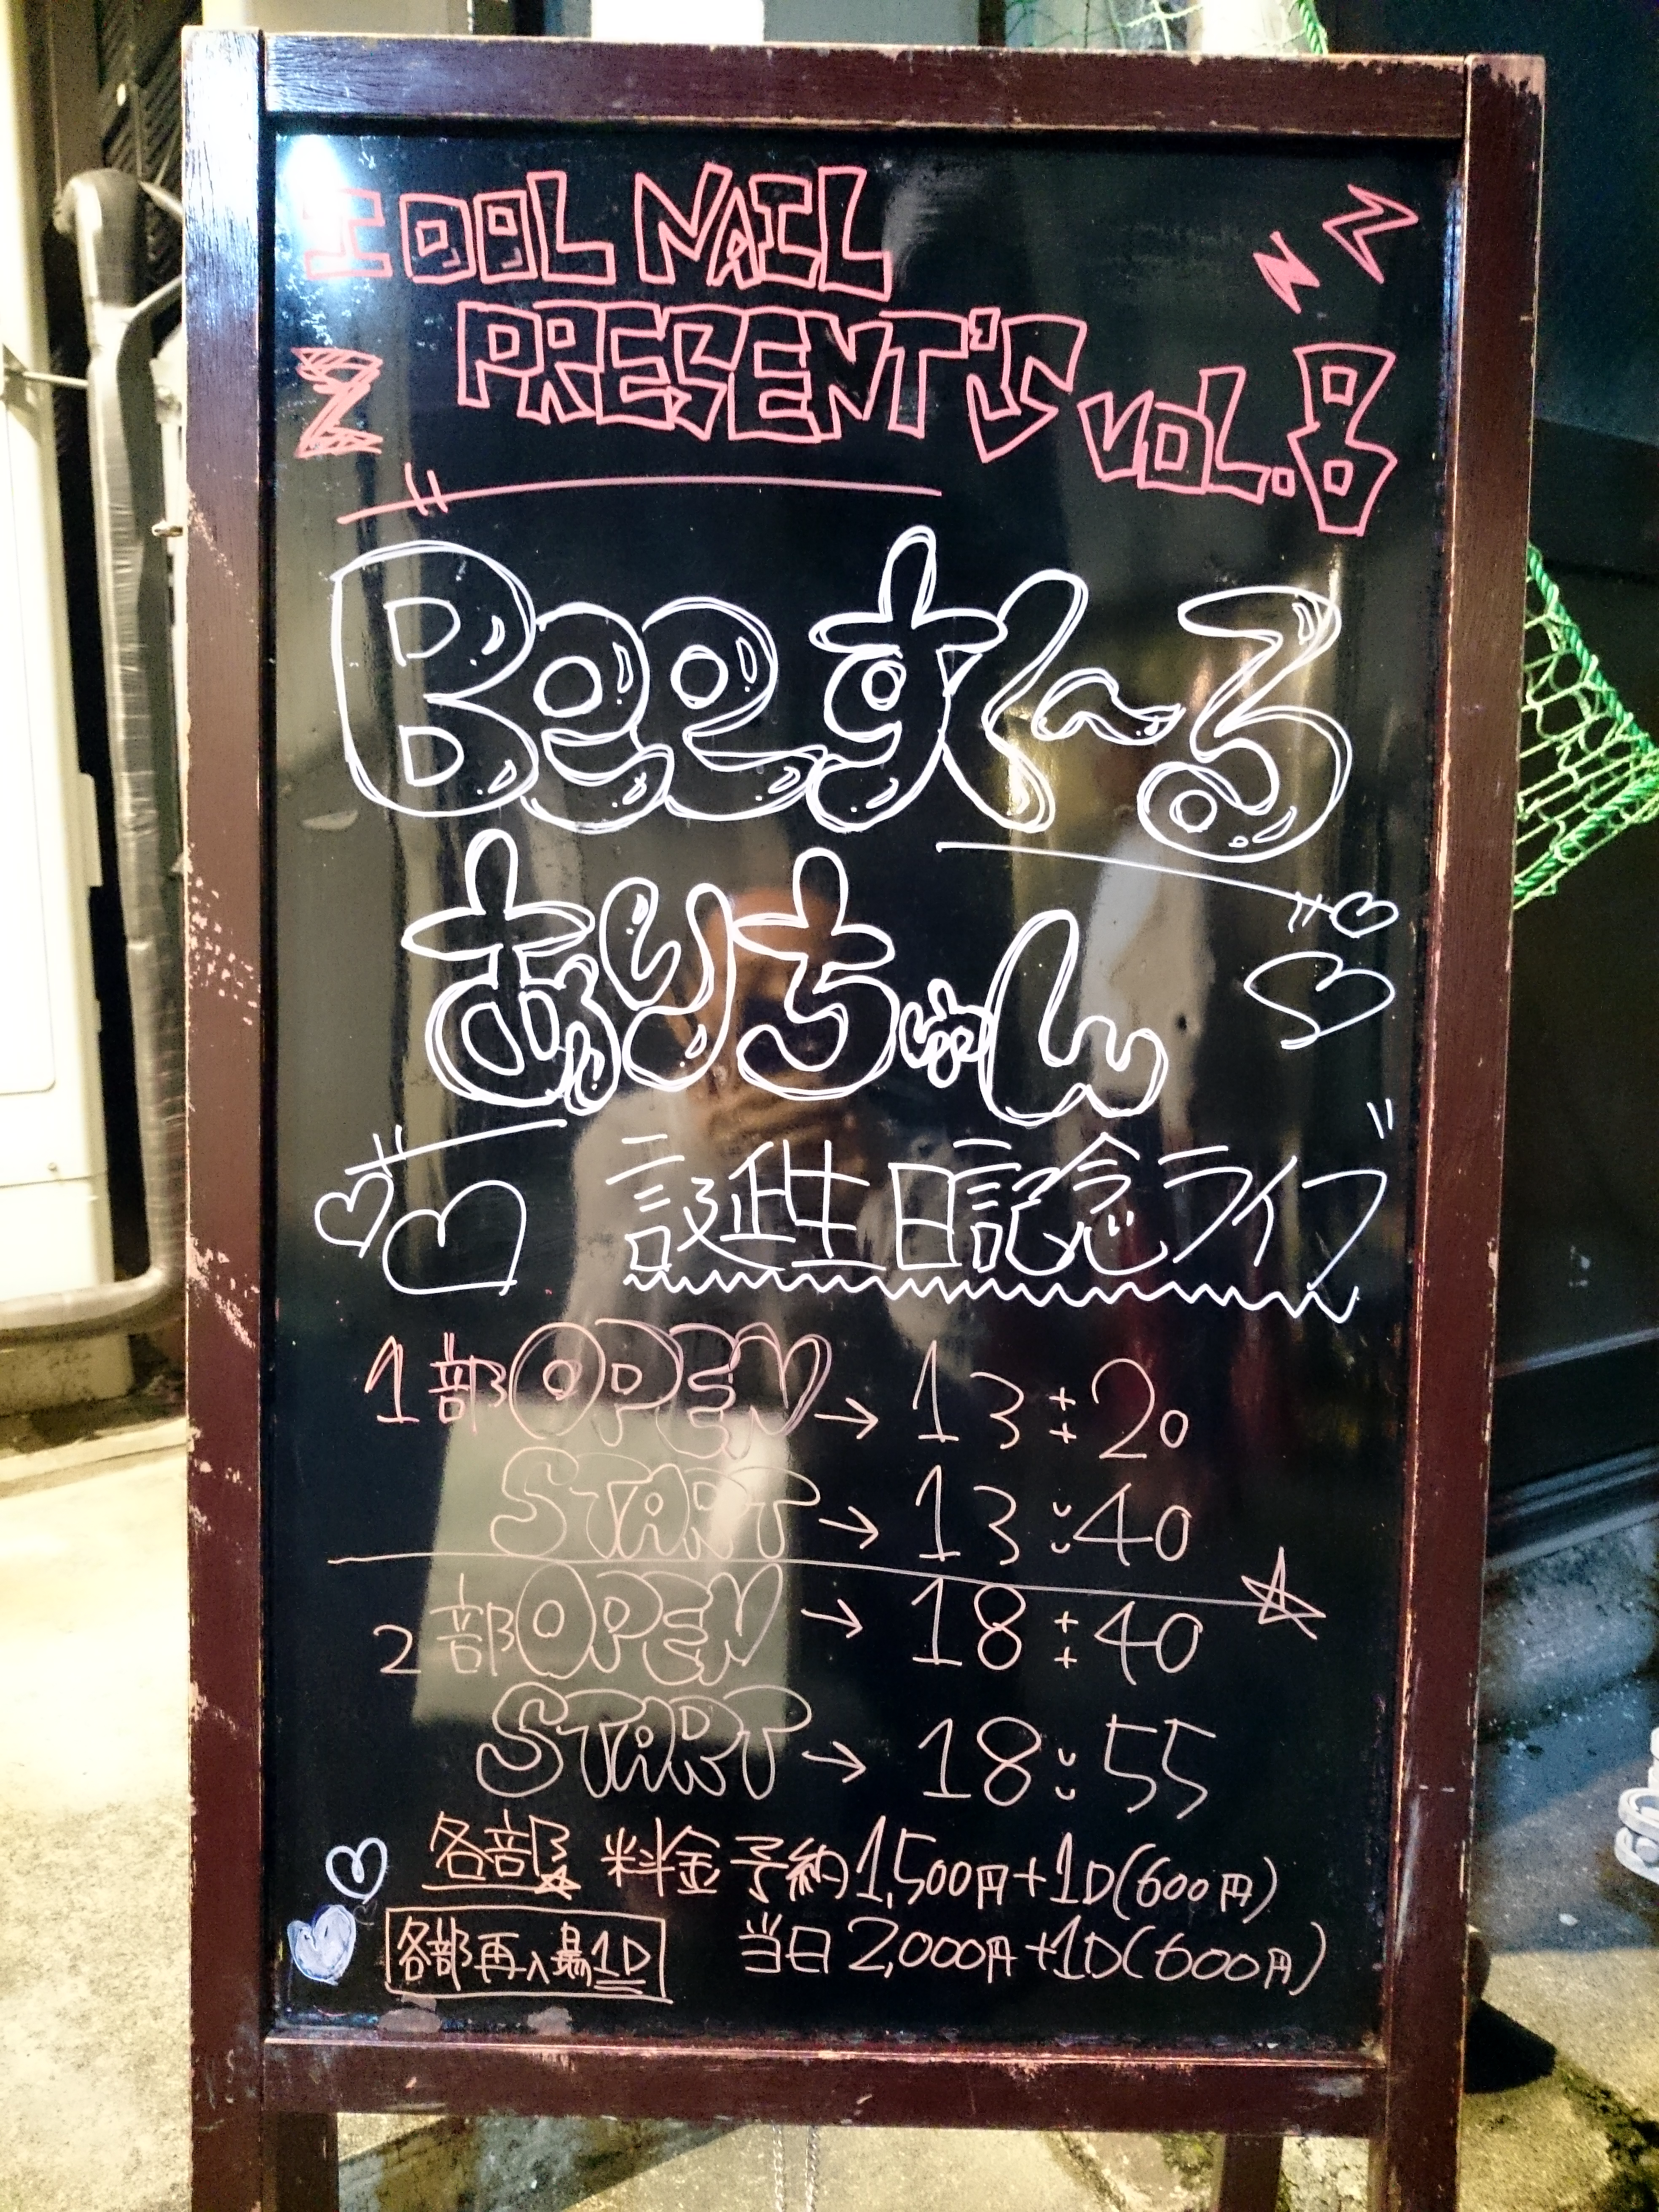 IDOL NAIL
PRESENT'S VOL.8
Beeすく～る
ありちゅん
誕生日記念ライブ
1部OPEN→13:20
START→13:40
2部OPEN→18:40
START→18:55
各部 料金 予約1,500円+1D(600円)
各部再入場1D 当日2,000円+1D(600円)